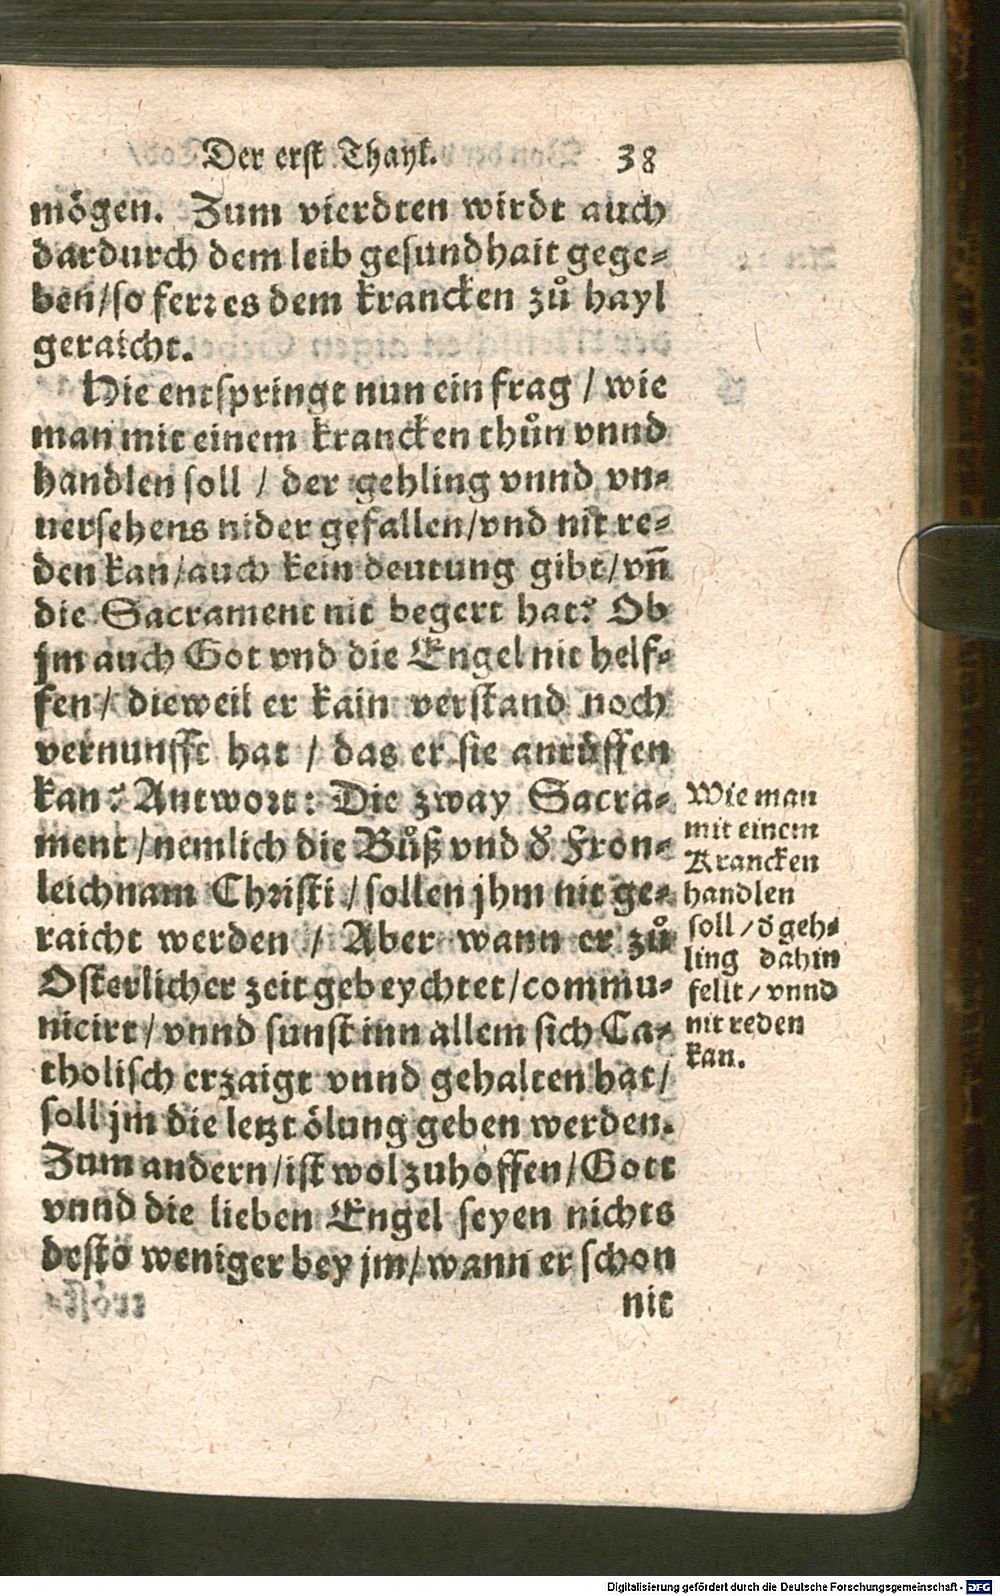 Der erst Thayl. 38
mögen. Zum vierdten wirdt auch
dardurch dem leib gesundhait gege-
ben/so ferꝛ es dem krancken zů hayl
geraicht.
Hie entspringt nun ein frag / wie
man mit einem krancken thůn vnnd
handlen soll / der gehling vnnd vn-
uersehens nider gefallen/vnd nit re-
den kan/auch kein deutung gibt/vn̄
die Sacrament nit begert hat? Ob
jm auch Got vnd die Engel nit helf-
fen/ dieweil er kain verstand noch
vernunfft hat / das er sie anrüffen
kan? Antwoꝛt: Die zway Sacra-
ment/nemlich die Bůß vnd ð Fron-
leichnam Chꝛisti/sollen jhm nit ge-
raicht werden / Aber wann er zů
Osterlicher zeit gebeychtet/commu-
niciꝛt/vnnd sunst inn allem sich Ca-
tholisch erzaigt vnnd gehalten hat/
soll jm die letzt ölung geben werden.
Zum andern/ist wol zuhoffen/Gott
vnnd die lieben Engel seyen nichts
desto weniger bey jm/wann er schon
nit
Wie man
mit einem
Krancken
handlen
soll/ð geh-
ling dahin
fellt/vnnd
nit reden
kan.
Digitalisierung gefördert durch die Deutsche Forschungsgemeinschaft - DFG